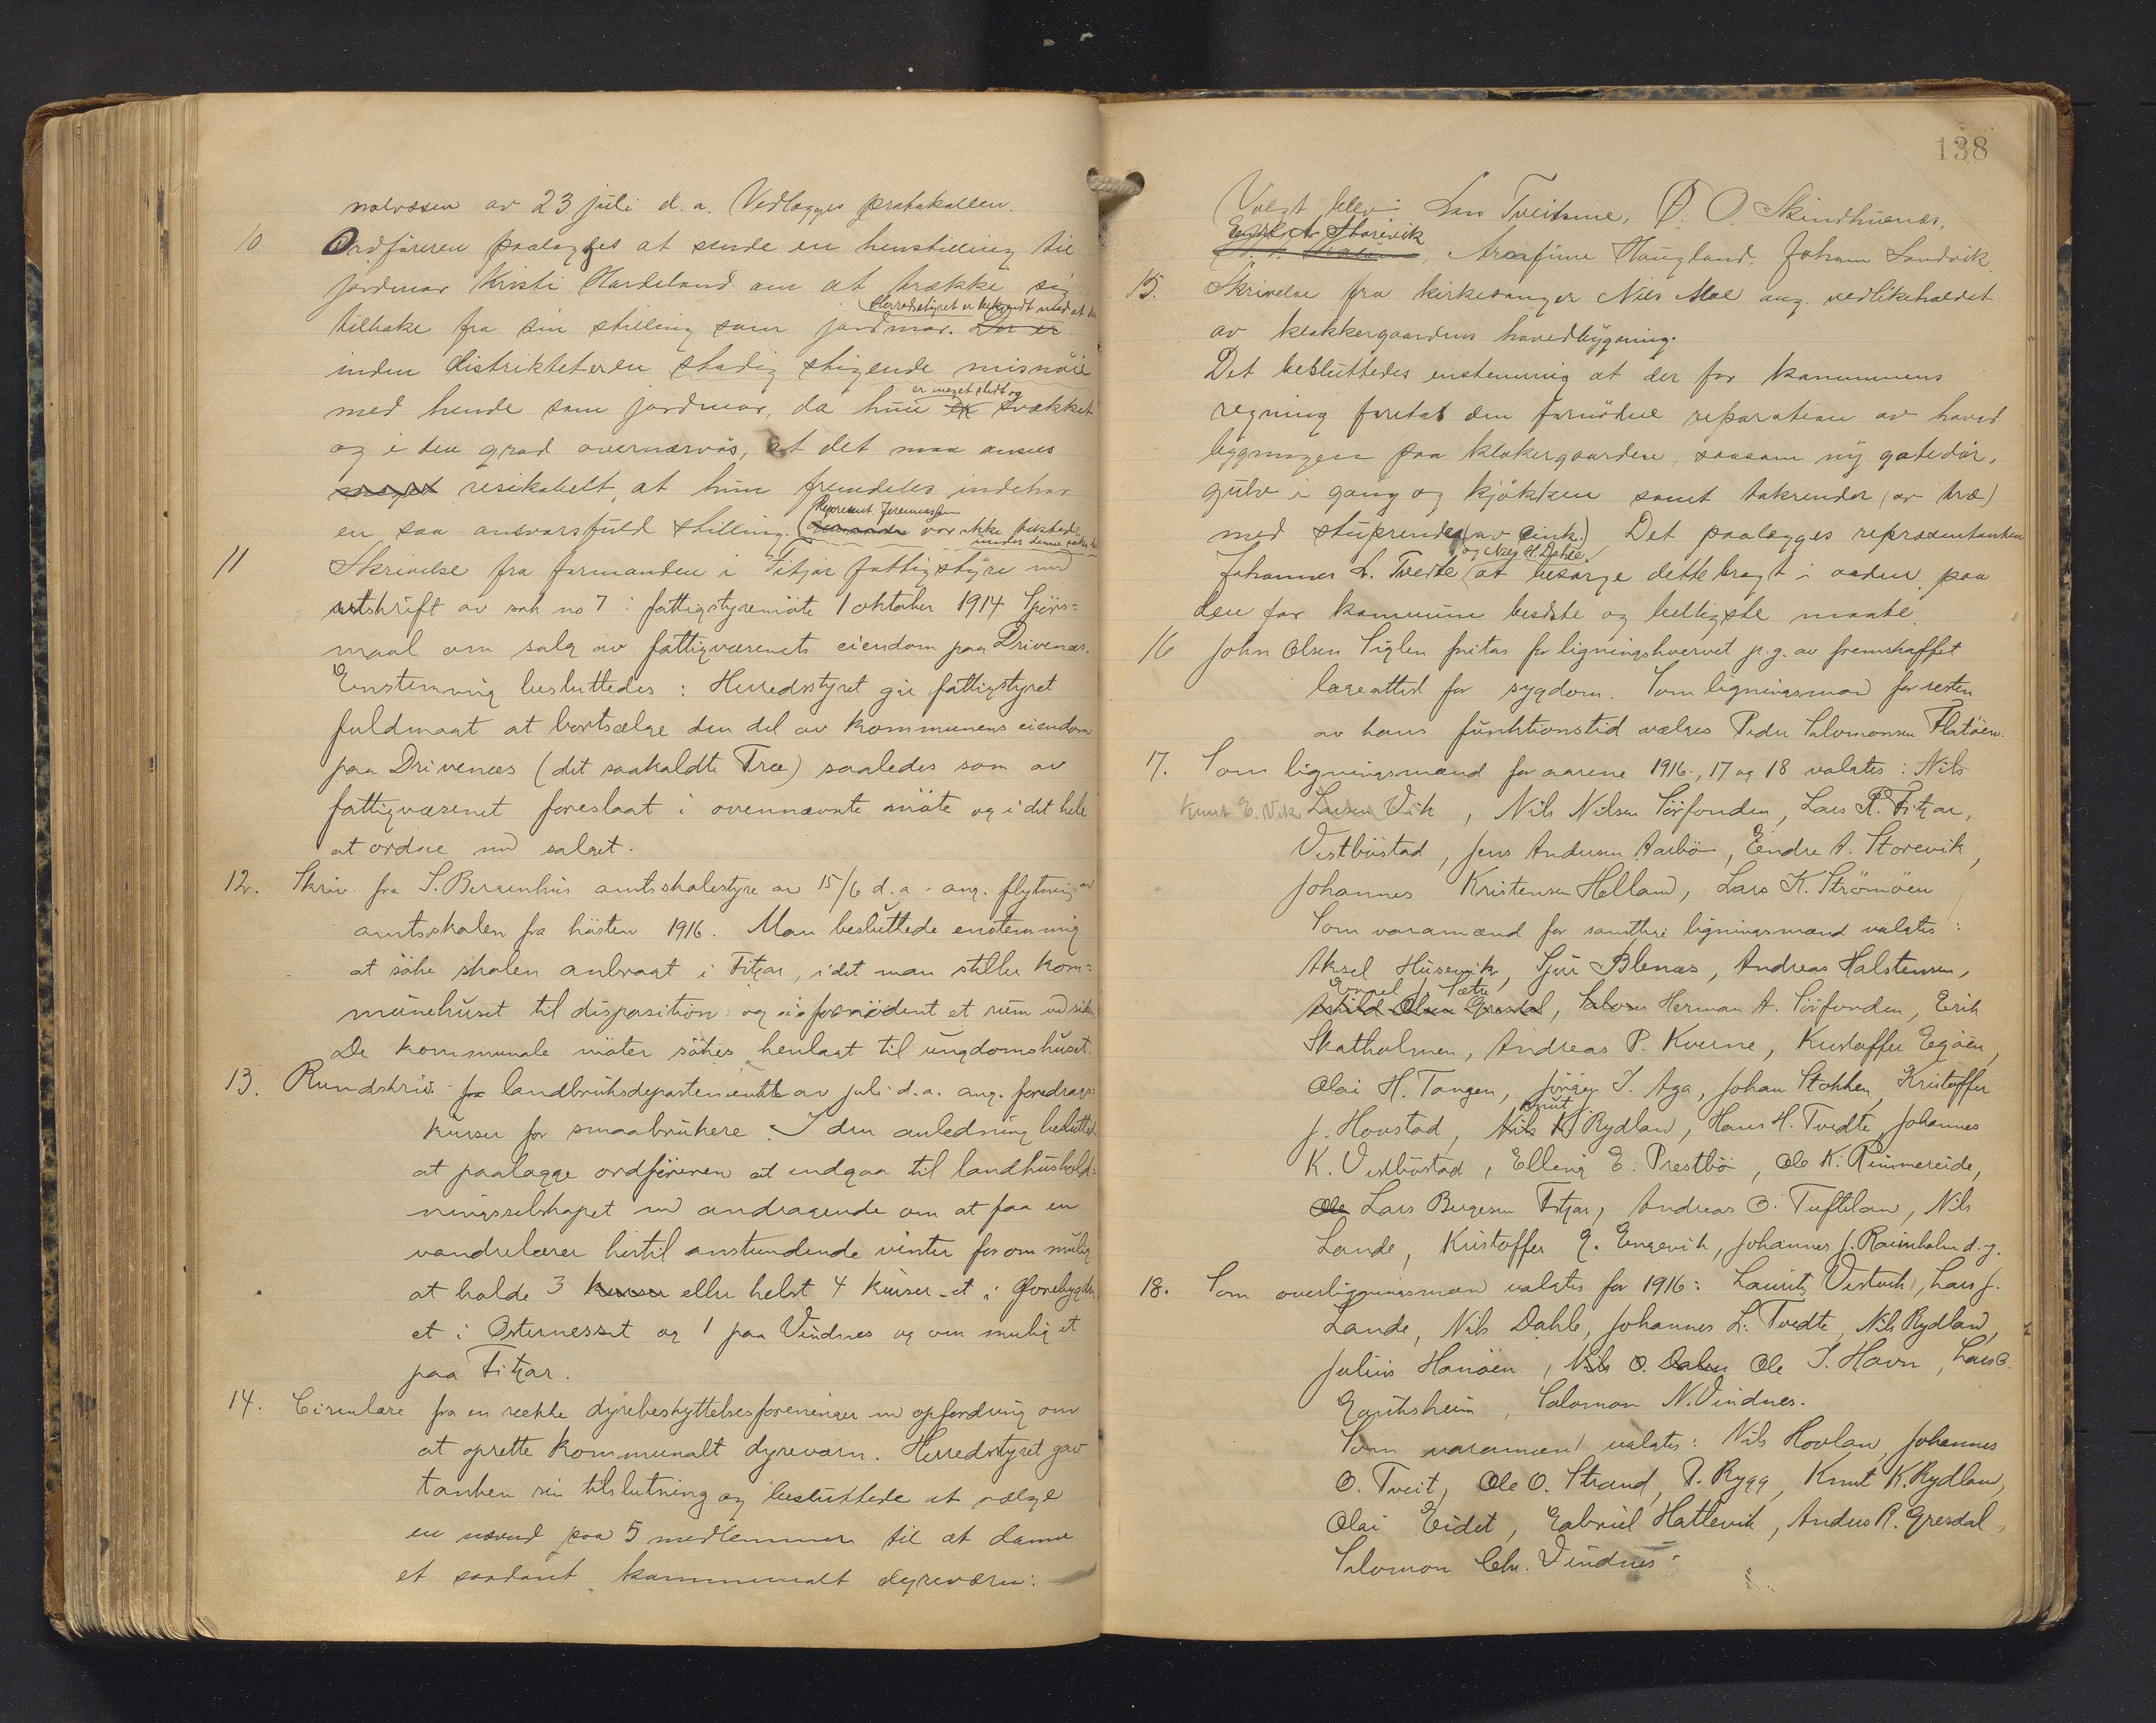 nalvæsen av 23 juli d. a. Vedlægges protokollen.
10 Ordføreren paalægges at sende en henstilling til
jordmor Kristi Hardeland om at trække sig
tilbake fra sin stilling som jordmor. Herredsstyret er bekjendt med at der Der er
inden distriktet er en stadig stigende misnöie
med hende som jordmor, da hun er er meget sløt og svækket
og i den grad overnærvøs, at det maa ansees
meget resikabelt, at hun fremdeles indehar
en saa ansvarsfuld stilling. (Represent. Foremansen var ikke tilstede
under denne sak
11 Skrivelse fra formanden i Fitjar fattigstyre m
utskrift av sak no 7 i fattigstyremöte 1 oktober 1914 Spörs=
maal om salg av fattigvæsenets eiendom paa Drivenæs.
Enstemmig besluttedes: Herredsstyret gir fattigstyret
fuldmagt at bortsælge den del av kommunens eiendom
paa Drivenæs (det saakaldte Træ) saaledes som av
fattigvæsenet foreslaat i ovennævnte möte og i det hele
at ordne m salget.
12. Skriv. fra S. Bergenhus amtsskolestyre av 15/6 d. a. ang. flytning av
amtsskolen fra hösten 1916. Man besluttede enstemmig
at söke skolen anbragt i Fitjar, idet man stiller kom=
munehuset til disposition og om fornödent et rum ved siden
De kommunale möter sökes henlagt til ungdomshuset.
13. Rundskriv fra landbruksdepartementet av juli d. a. ang. foredrags=
kurser for smaabrukere. I den anledning besluttedes
at paalægge ordföreren at indgaa til landhushold=
ningsselskapet m andragende om at faa en
vandrelærer hertil anstundende vinter for om mulig
at holde 3 kurser eller helst 4 kurser - et i Övrebygden
et i Osternesset og 1 paa Vindnes og om mulig et
paa Fitjar.
14. Cirkulære fra en række dyrebeskyttelsesforeninger m opfordring om
at oprette kommunalt dyreværn. Herredsstyret gav
tanken sin tilslutning og besluttede at vælge
en nævnd paa 5 medlemmer til at danne
et saadant kommunalt dyreværn:
138
Valgt blev: Lars Tveitane, Ø. O. Skindhuenæs,
Endre A Storevik
Arnfinn Haugland, Johan Sandvik.
15. Skrivelse fra kirkesanger Nils Moe ang. vedlikeholdet
av klokkergaardens hovedbygning.
Det besluttedes enstemmig at der for kommunens
regning foretas den fornödne reparation av hoved
bygningen paa klokkergaarden, saasom ny gatedör,
gulv i gang og kjökken samt takrender (av træ)
med stuprender (av zink.) Det paalægges repræsentanten
Johannes L. Tvedte og Nils H. Dahle at besörge dette bragt i orden paa
den for kommunen bedste og billigste maate.
16 John Olsen Siglen fritas for ligningshvervet p. g. av fremskaffet
lægeattest for sygdom. Som ligningsmand for resten
av hans funktionstid vælges Peder Salomonsen Flatöen.
17. Som ligningsmænd for aarene 1916, 17 og 18 valgtes: Nils
Knut E. Vik Larsen Vik, Nils Nilsen Sörfonden, Lars R. Fitjar,
Vestbüstad, Jens Andersen Aarbö, Endre A. Storevik,
Johannes Kristensen Helland, Lars K. Strömöen
Som varamænd for samtlige ligningsmænd valgtes:
Aksel Husevik, Sjur Blenæs, Andreas Halstensen,
Engel J. Sætre
Askild Olsen Grasdal, Salom Herman A. Sörfonden, Erik
Skatholmen, Andreas P. Kverne, Kristoffer Egöen,
Olai H. Tangen, Jörgen I. Aga, Johan Stokken, Kristoffer
J. Hovstad, Nils Knut K Rydland, Hans H. Tvedte, Johannes
K. Vestbüstad, Elling E. Prestbö, Ole K. Rimmereide,
Ole Lars Bergesen Fitjar, Andreas O. Tufteland, Nils
Lande, Kristoffer G. Engevik, Johannes J. Raunholm d. y.
18. Som overligningsmænd valgtes for 1916: Lauritz Vestvik, Lars J.
Lande, Nils Dahle, Johannes L. Tvedte, Nils Rydland,
Julius Hanöen, Nils O. Dalen Ole I. Havn, Lars O.
Goutsheim, Salomon N. Vindnes.
Som varamænd valgtes: Nils Hovland, Johannes
O. Tveit, Ole O. Strand, P. Rygg, Knut K. Rydland,
Olai Eidet, Gabriel Hatlevik, Anders R. Grasdal,
Salomon Chr. Vindnes.